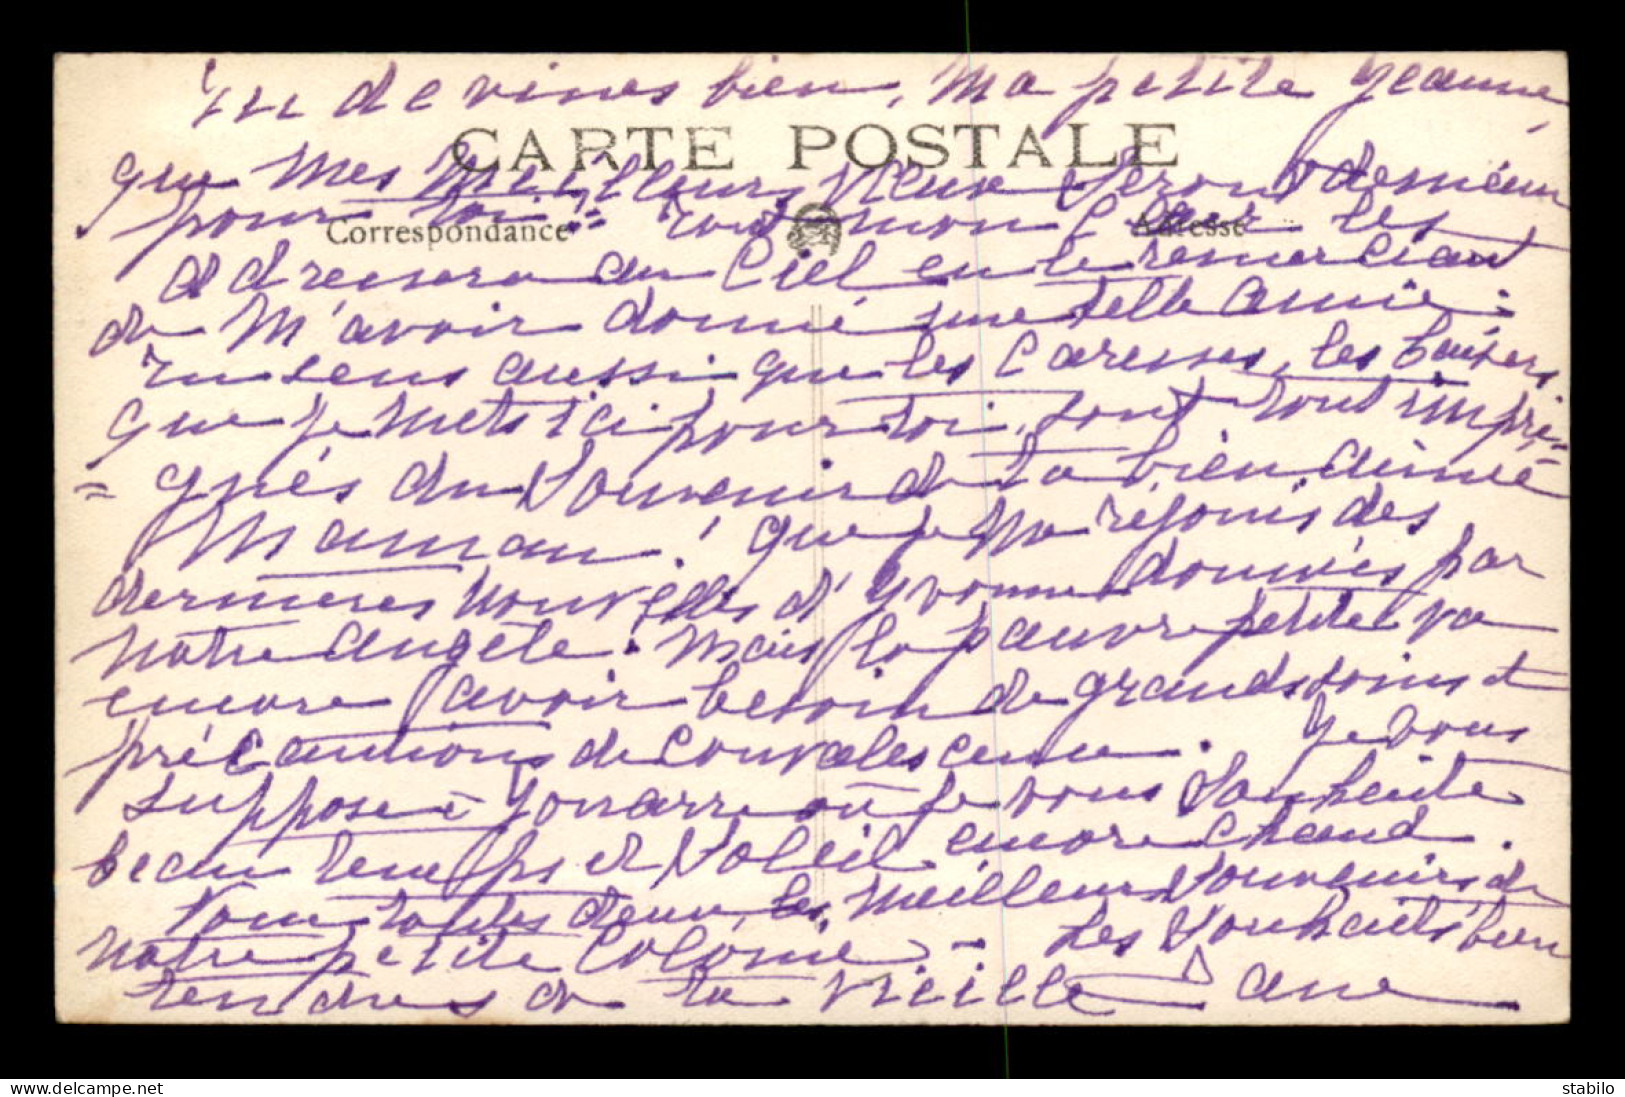 Tu devines bien, Ma petite Jeanne,
CARTE POSTALE
que Mes Meilleurs Vœux seront demain
pour toi = Tout mon Cœur les
Correspondance Adresse
adressera au Ciel en le remerciant
de M'avoir donné une telle amie :
Tu sens aussi que les Caresses, les baisers
que je mets ici pour toi, sont tout impré=
=gnés du Souvenir de ta bien aimée
Maman ! que je Me réjouis des
dernières nouvelles d'Yvonne données par
notre Angèle : Mais la pauvre petite va
encore avoir besoin de grands soins et
précautions de Convalescence . Je vous
suppose à où je vous Souhaite
beau temps et Soleil encore Chaud .
Pour toutes deux, les Meilleurs Souvenirs de
notre petite Colonie - Les Souhaits bien
tendres de ta Vieille
Delcampe.net
stabilo